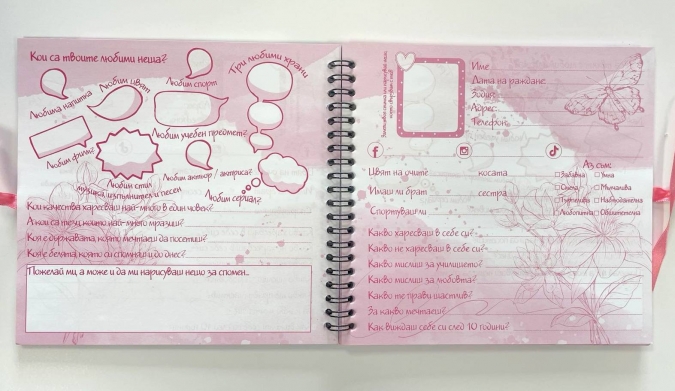 Кои са твоите любими неща?
Любима напитка
Любим цвят
Любим спорт
Три любими храни
Любим филм?
Любим учебен предмет?
Любим стил
музика, изпълнител и песен
Любим актьор / актриса?
Любим сериал?
Кои качества харесваш най-много в един човек?
А кои са тези които най-много мразиш?
Коя е държавата, която мечтаеш да посетиш?
Коя е белята, която си спомняш и до днес?
Пожелай ми, а може и да ми нарисуваш нещо за спомен..
Име
Дата на раждане:
Зодия:
Адрес:
Телефон:
Цвят на очите
косата
Имаш ли брат
сестра
Спортуваш ли
Аз съм:
Забавна
Умна
Смела
Мълчалива
Търпелива
Наблюдателна
Любопитна
Обаятелна
Какво харесваш в себе си?
Какво не харесваш в себе си?
Какво мислиш за училището?
Какво мислиш за любовта?
Какво те прави щастлив?
За какво мечтаеш?
Как виждаш себе си след 10 години?